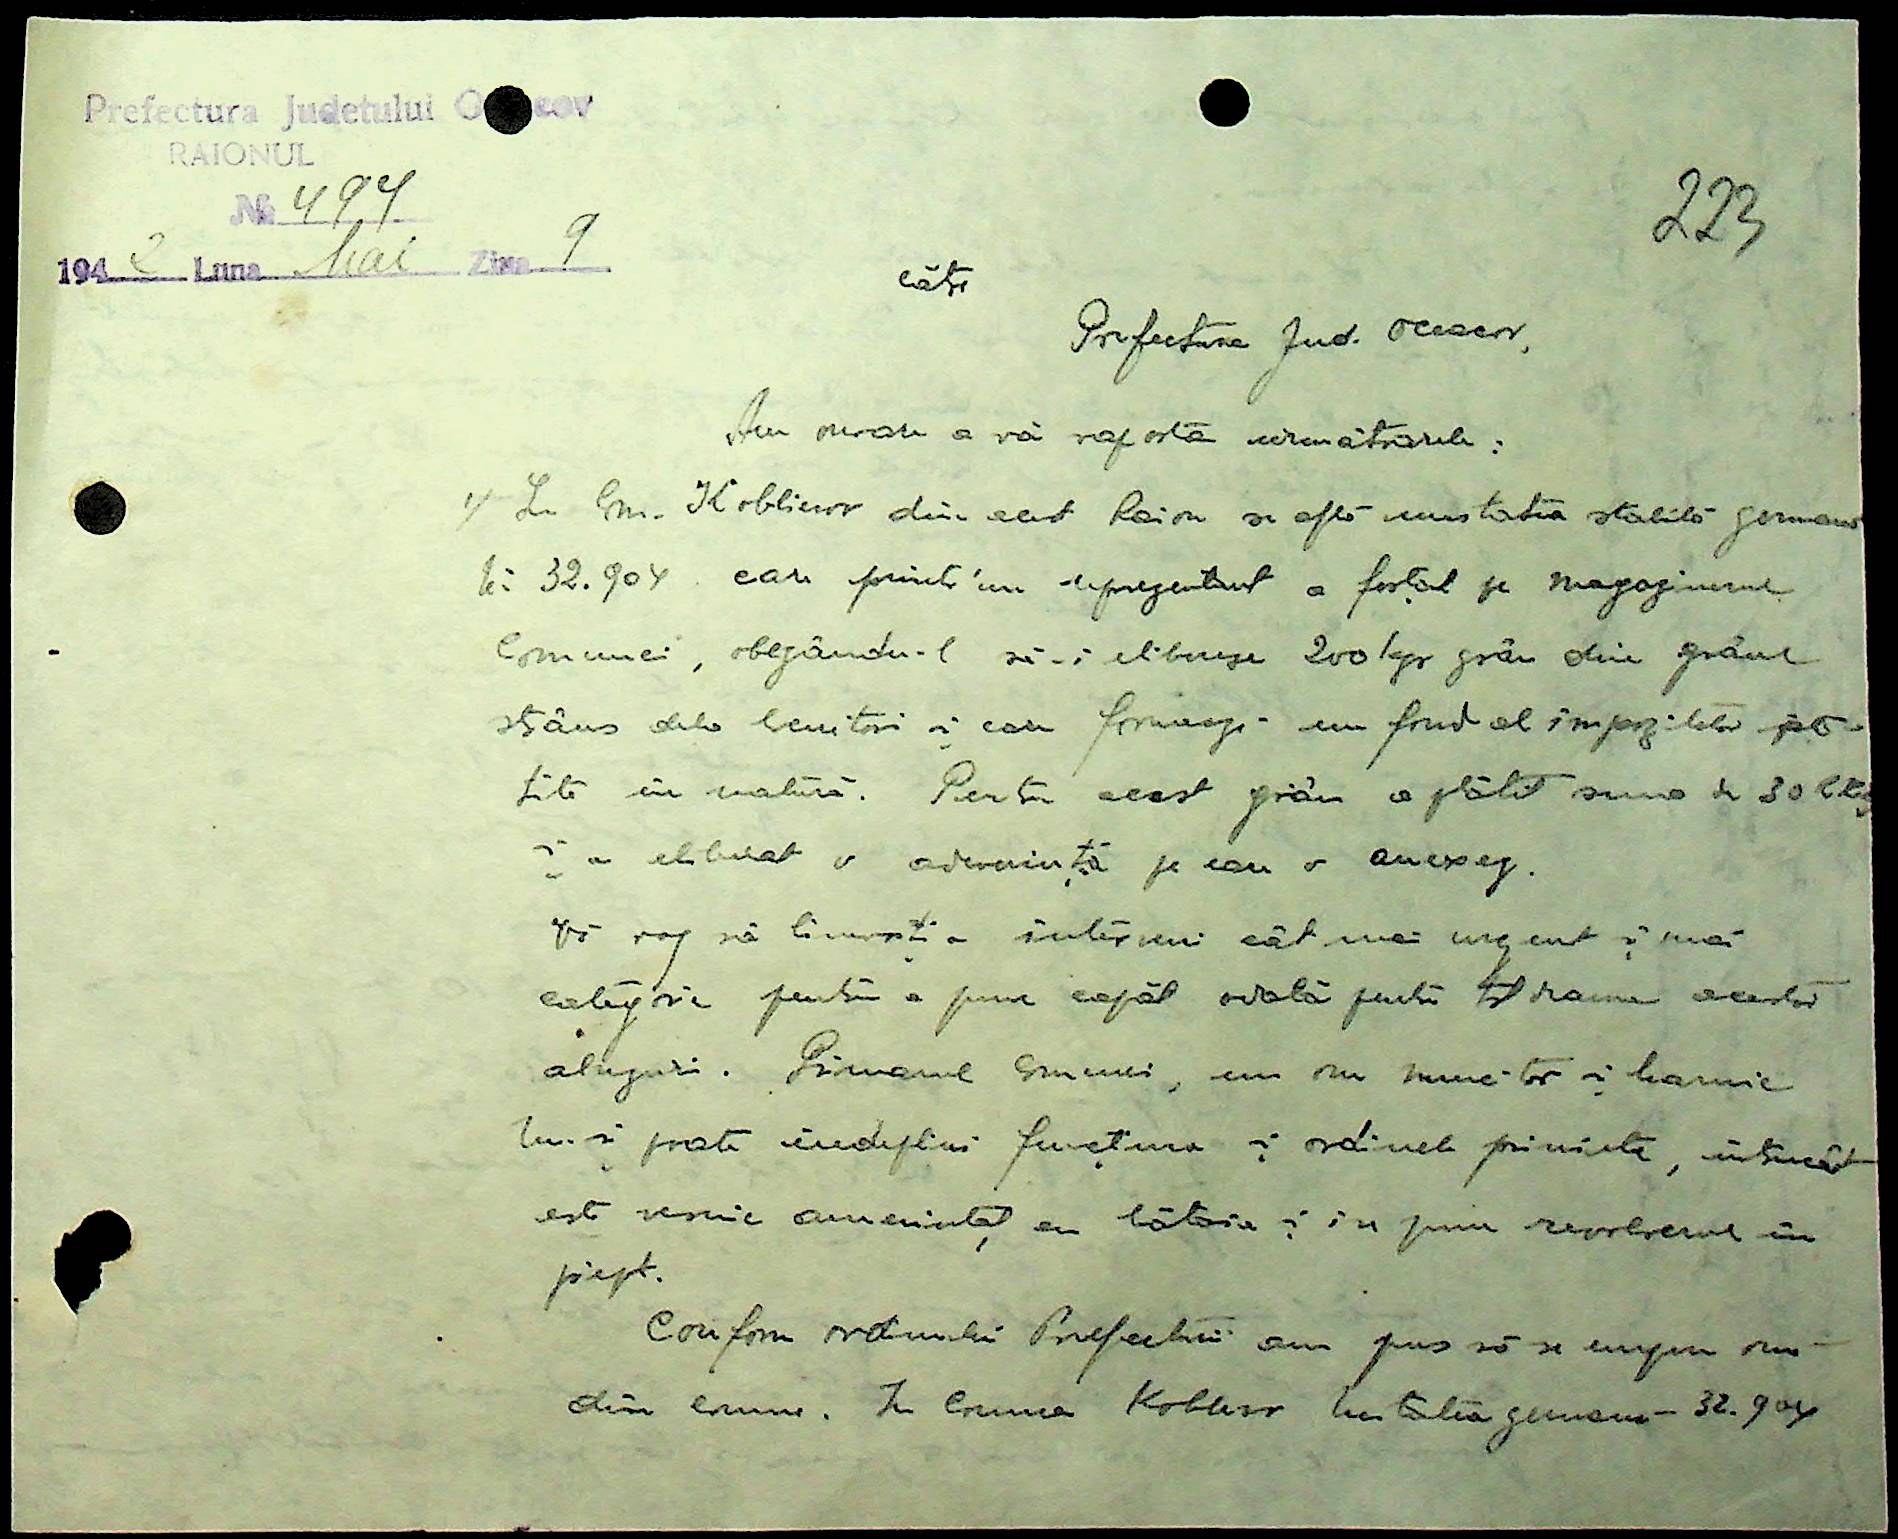 Prefectura Judetului O cov
RAIONUL
№ 494
1942 Luna Mai Ziua 9
223
către
Prefectura Jud. Oceacov,
Am onoare a vă raporta următoarele:
1/ În Com. Koblicov din acest Raion se află unitatea stabilă germană
32.904 care printr'un reprezentant a forțat pe magazinerul
Comunei, obligându-l să-i elibereze 200 kgr grâu din grâul
strâns dela locuitori și care formează un fond al impozitelor plă-
tite în natură. Pentru acest grâu a plătit suma de 30
și a eliberat o adeverință pe care o anexez.
Vă rog să binevoiți a interveni cât mai urgent și mai
categoric pentru a pune capăt odată pentru totdeauna acestor
abuzuri. Primarul Comunei, un om muncitor și harnic
nu-și poate îndeplini funcțiunea și ordinele primite, întrucât
este vesnic amenințat cu bătaia și i se pune revolverul în
piept.
Conform ordinului Prefecturii am pus să se
din comune. În Comuna Koblicov Unitatea germană 32.904